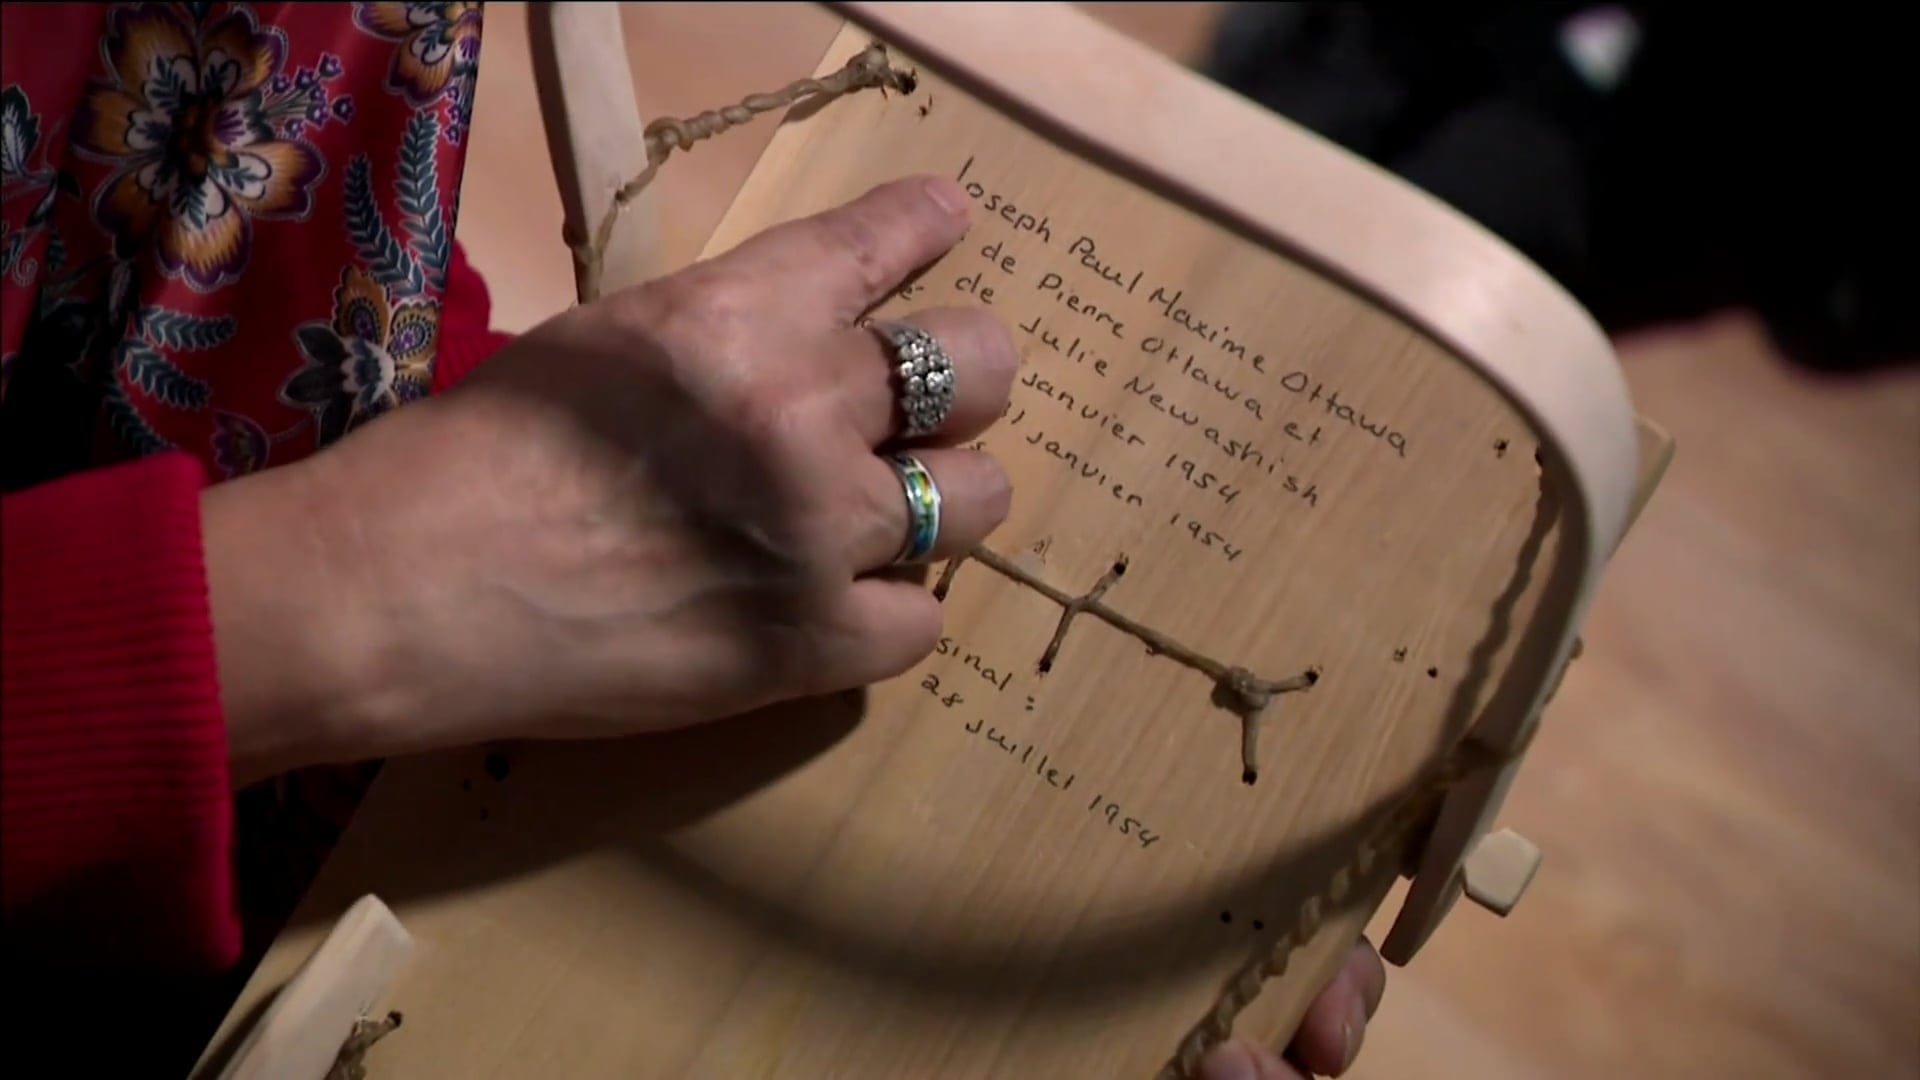 Joseph Paul Maxime Ottawa
de Pierre Ottawa et
de Julie Newashish
janvier 1954
11 janvier 1954
sinal :
28 Juillet 1954